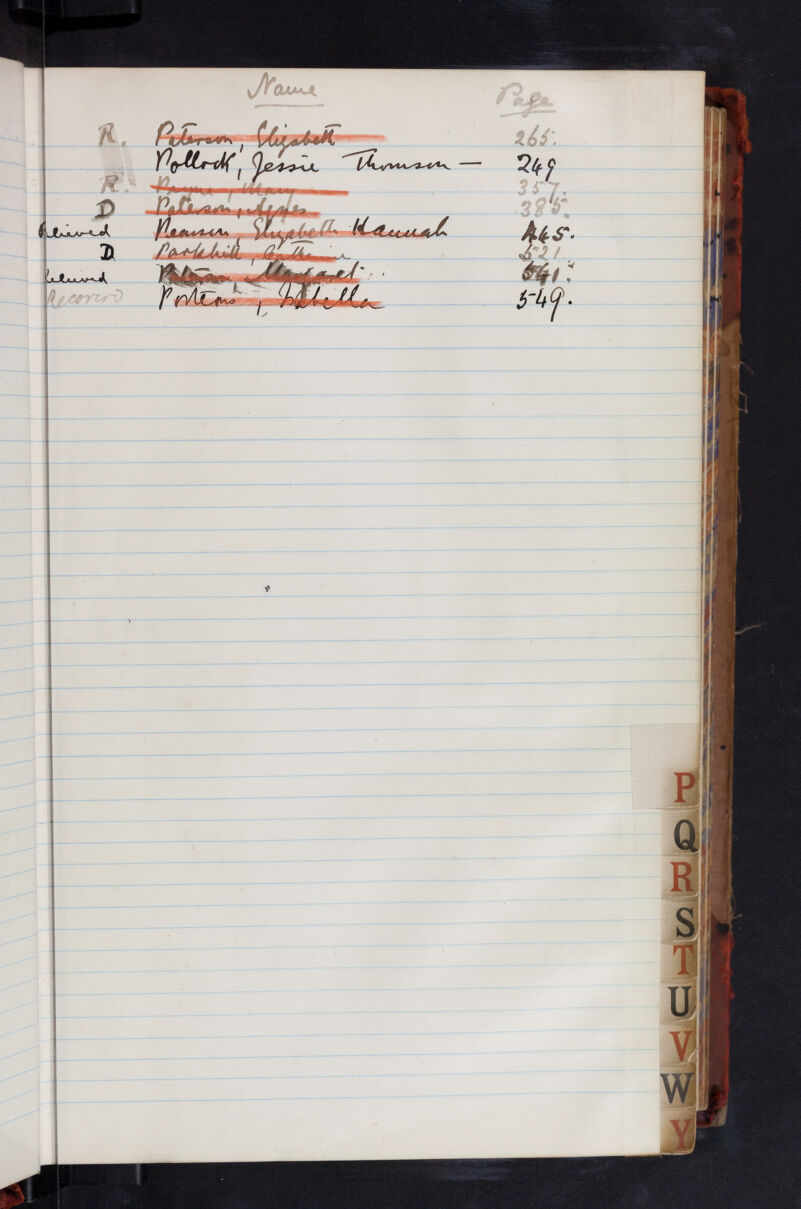 Name Page
R. Paterson, Elizabeth 265.
Pollock, Jessie Thomson — 249
R. Payne, Mary 357.
D Paterson, Agnes 385.
Relieved Pearson, Elizabeth Hannah 445.
D Parkhill, Catherine 521.
Relieved Paterson, Margaret 541.
Recovered Porteous, Isabella 549.
P
Q
R
S
T
U
V
W
Y